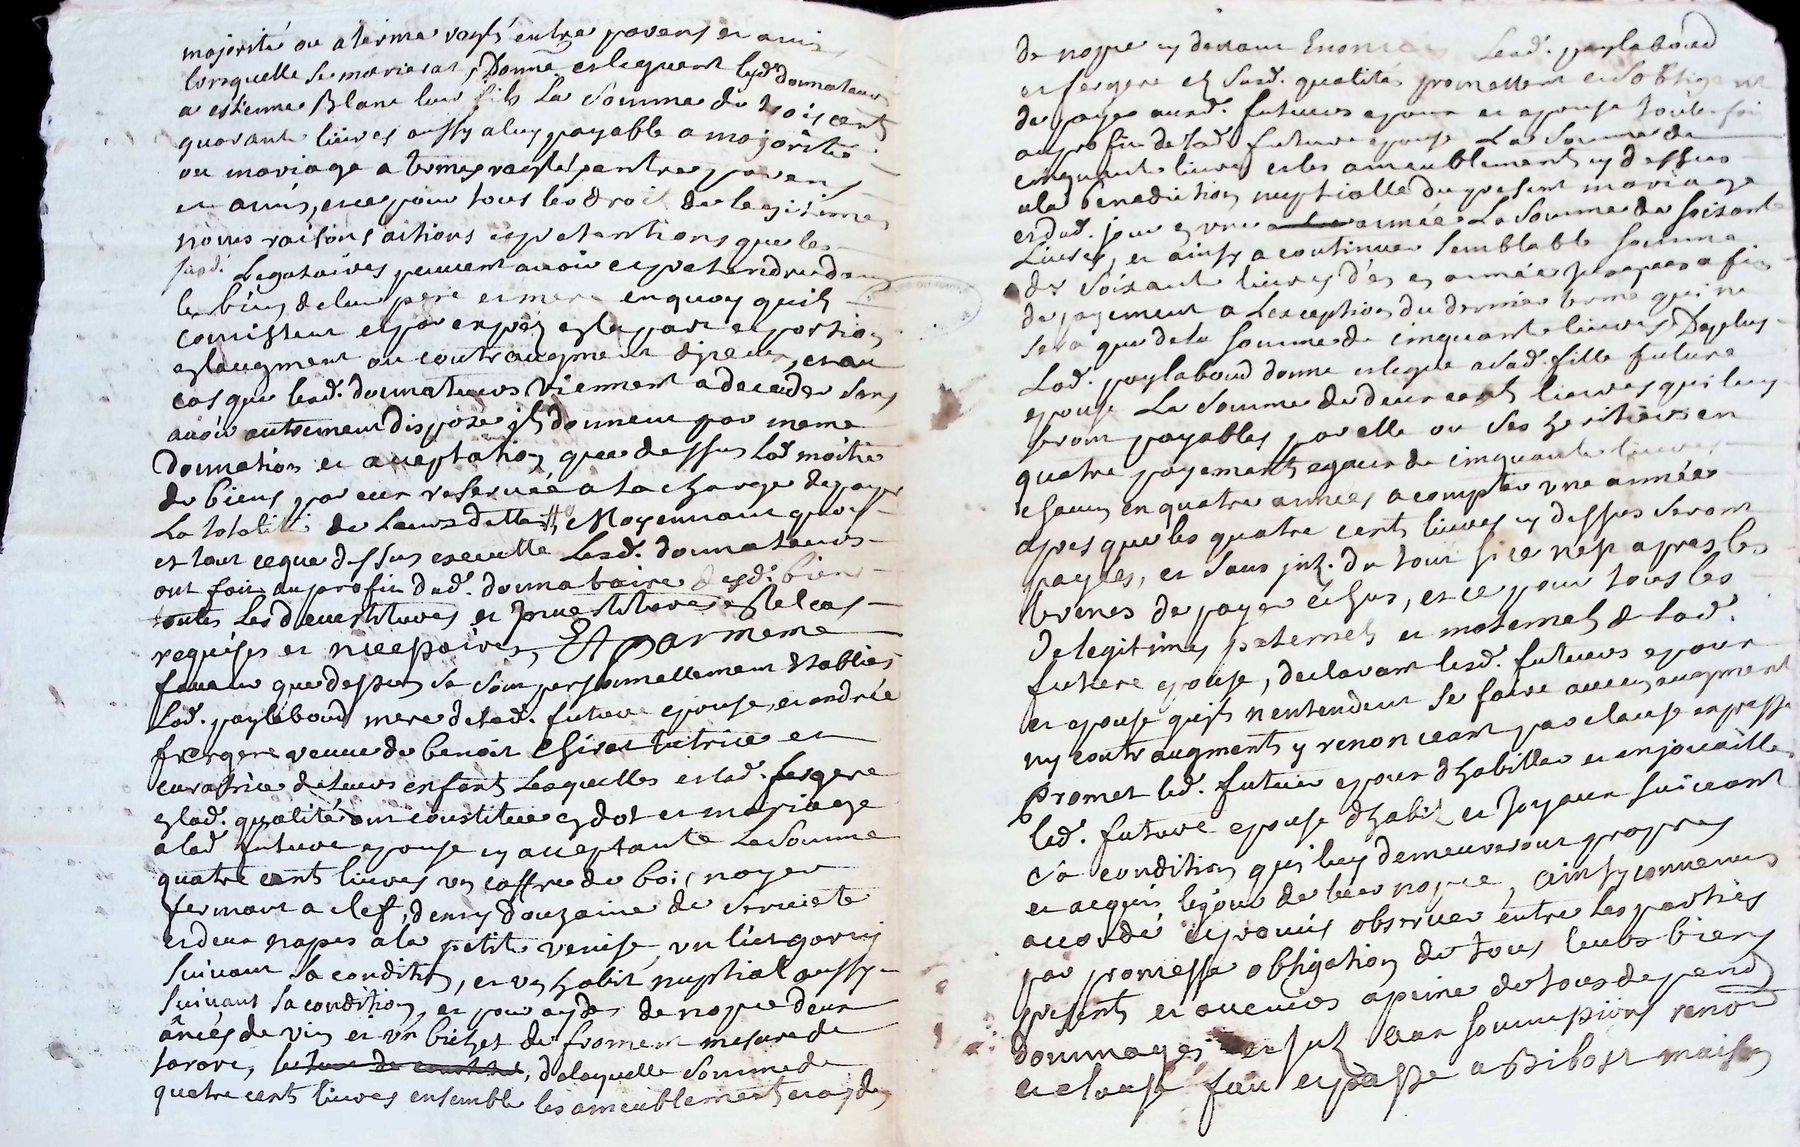 majorité ou a terme reglé entre parens et amis
lorsquelle se mariera, Donne et leguent lesd. donnateurs
a estienne Blanc leur fils La Somme de trois cent
quarante livres aussy a luy payable a majorité
ou mariage a termes reglé entre parens
et amis, et ce pour tous les droits de legitimes
noms raisons actions et pretentions que les
susd. Legataires peuvent avoir et pretendre dans
les biens de leur pere et mere en quoy quils
consistent et par exprès et la part et portion
et laugment ou contraugment dyceux, et au
cas que lesd. donnateurs viennent a deceder sans
avoir autrement disposé ils donnent par meme
donnation et acceptation que dessus Lad. moitié
de biens par eux reservée a la charge de payer
La totalité de Leurs dettes Moyennant quoy
et tout ce que dessus executté Lesd. donnateurs
ont fait au profit dud. donnataire desd. biens
toutes Les devestitures et Investitures et le cas
requises et necessaires, Et par meme
faveur que dessus se sont personnellement Establies
Lad. paylaboud mere de lad. future epouse, et andrée
fergere veuve de benoit Chirat tutrice et
curatrice de leurs enfants Lesquelles et lad. fergere
et lad. qualité ont constitué en dot et mariage
a lad. future epouse en acceptante La Somme
quatre cent livres un coffre de bois noyer
fermant a clef, demy douzaine de serviete
et deux napes a la petite venise, un lict garny
suivant sa condition, et un habit nuptial aussy
suivant sa condition, et pour aydes de nopce deux
ânées de vin et un bichet de froment mesure de
tarare, delaquelle somme de
quatre cent livres ensemble les ameublements et aydes
de nopce cy devant Enoncés Lesd. paylaboud
et fergere et susd. qualité promettent et sobligent
de payer ausd. futurs epoux et epouse toutefois
au profit de lad. future epouse La Somme de
cinquante livres et les ameublements cy dessus
a la benediction nuptialle du present mariage
et dud. jour en une année La Somme de soixante
Livres, et ainsy a continuer semblable somme
de soixante livres d'an en année jusques a fin
de payement a Lexception du dernier terme qui ne
sera que de la somme de cinquante livres, De plus
Lad. paylaboud donne et legue a lad. fille future
epouse La Somme de deux cent livres qui luy
seront payables par elle ou ses heritiers en
quatre payements egaux de cinquante livres
chacun en quatre années a compter une année
apres que les quatre cent livres cy dessus seront
payées, et sans int. du tout si ce n'est apres les
termes de payer échus, et ce pour tous les
De legitimes paternels et maternels de lad.
future epouse, declarant lesd. futurs epoux
et epouse quils n'entendent se faire aucun augment
ny contraugment y renonceant par clause expresse
Promet led. futur epoux d'habiller et enjouailler
lad. future epouse d'habits et Joyaux suivant
sa condition qui luy demeureront propres
et acquis le jour de leur nopce, ainsy convenu
accordé et promis observer entre les parties
par promesse obligation de tous leurs biens
presents et avenirs a peine de tous depends
dommages et int. avec soumissions renon
et clause fait et passé a Bibost maison